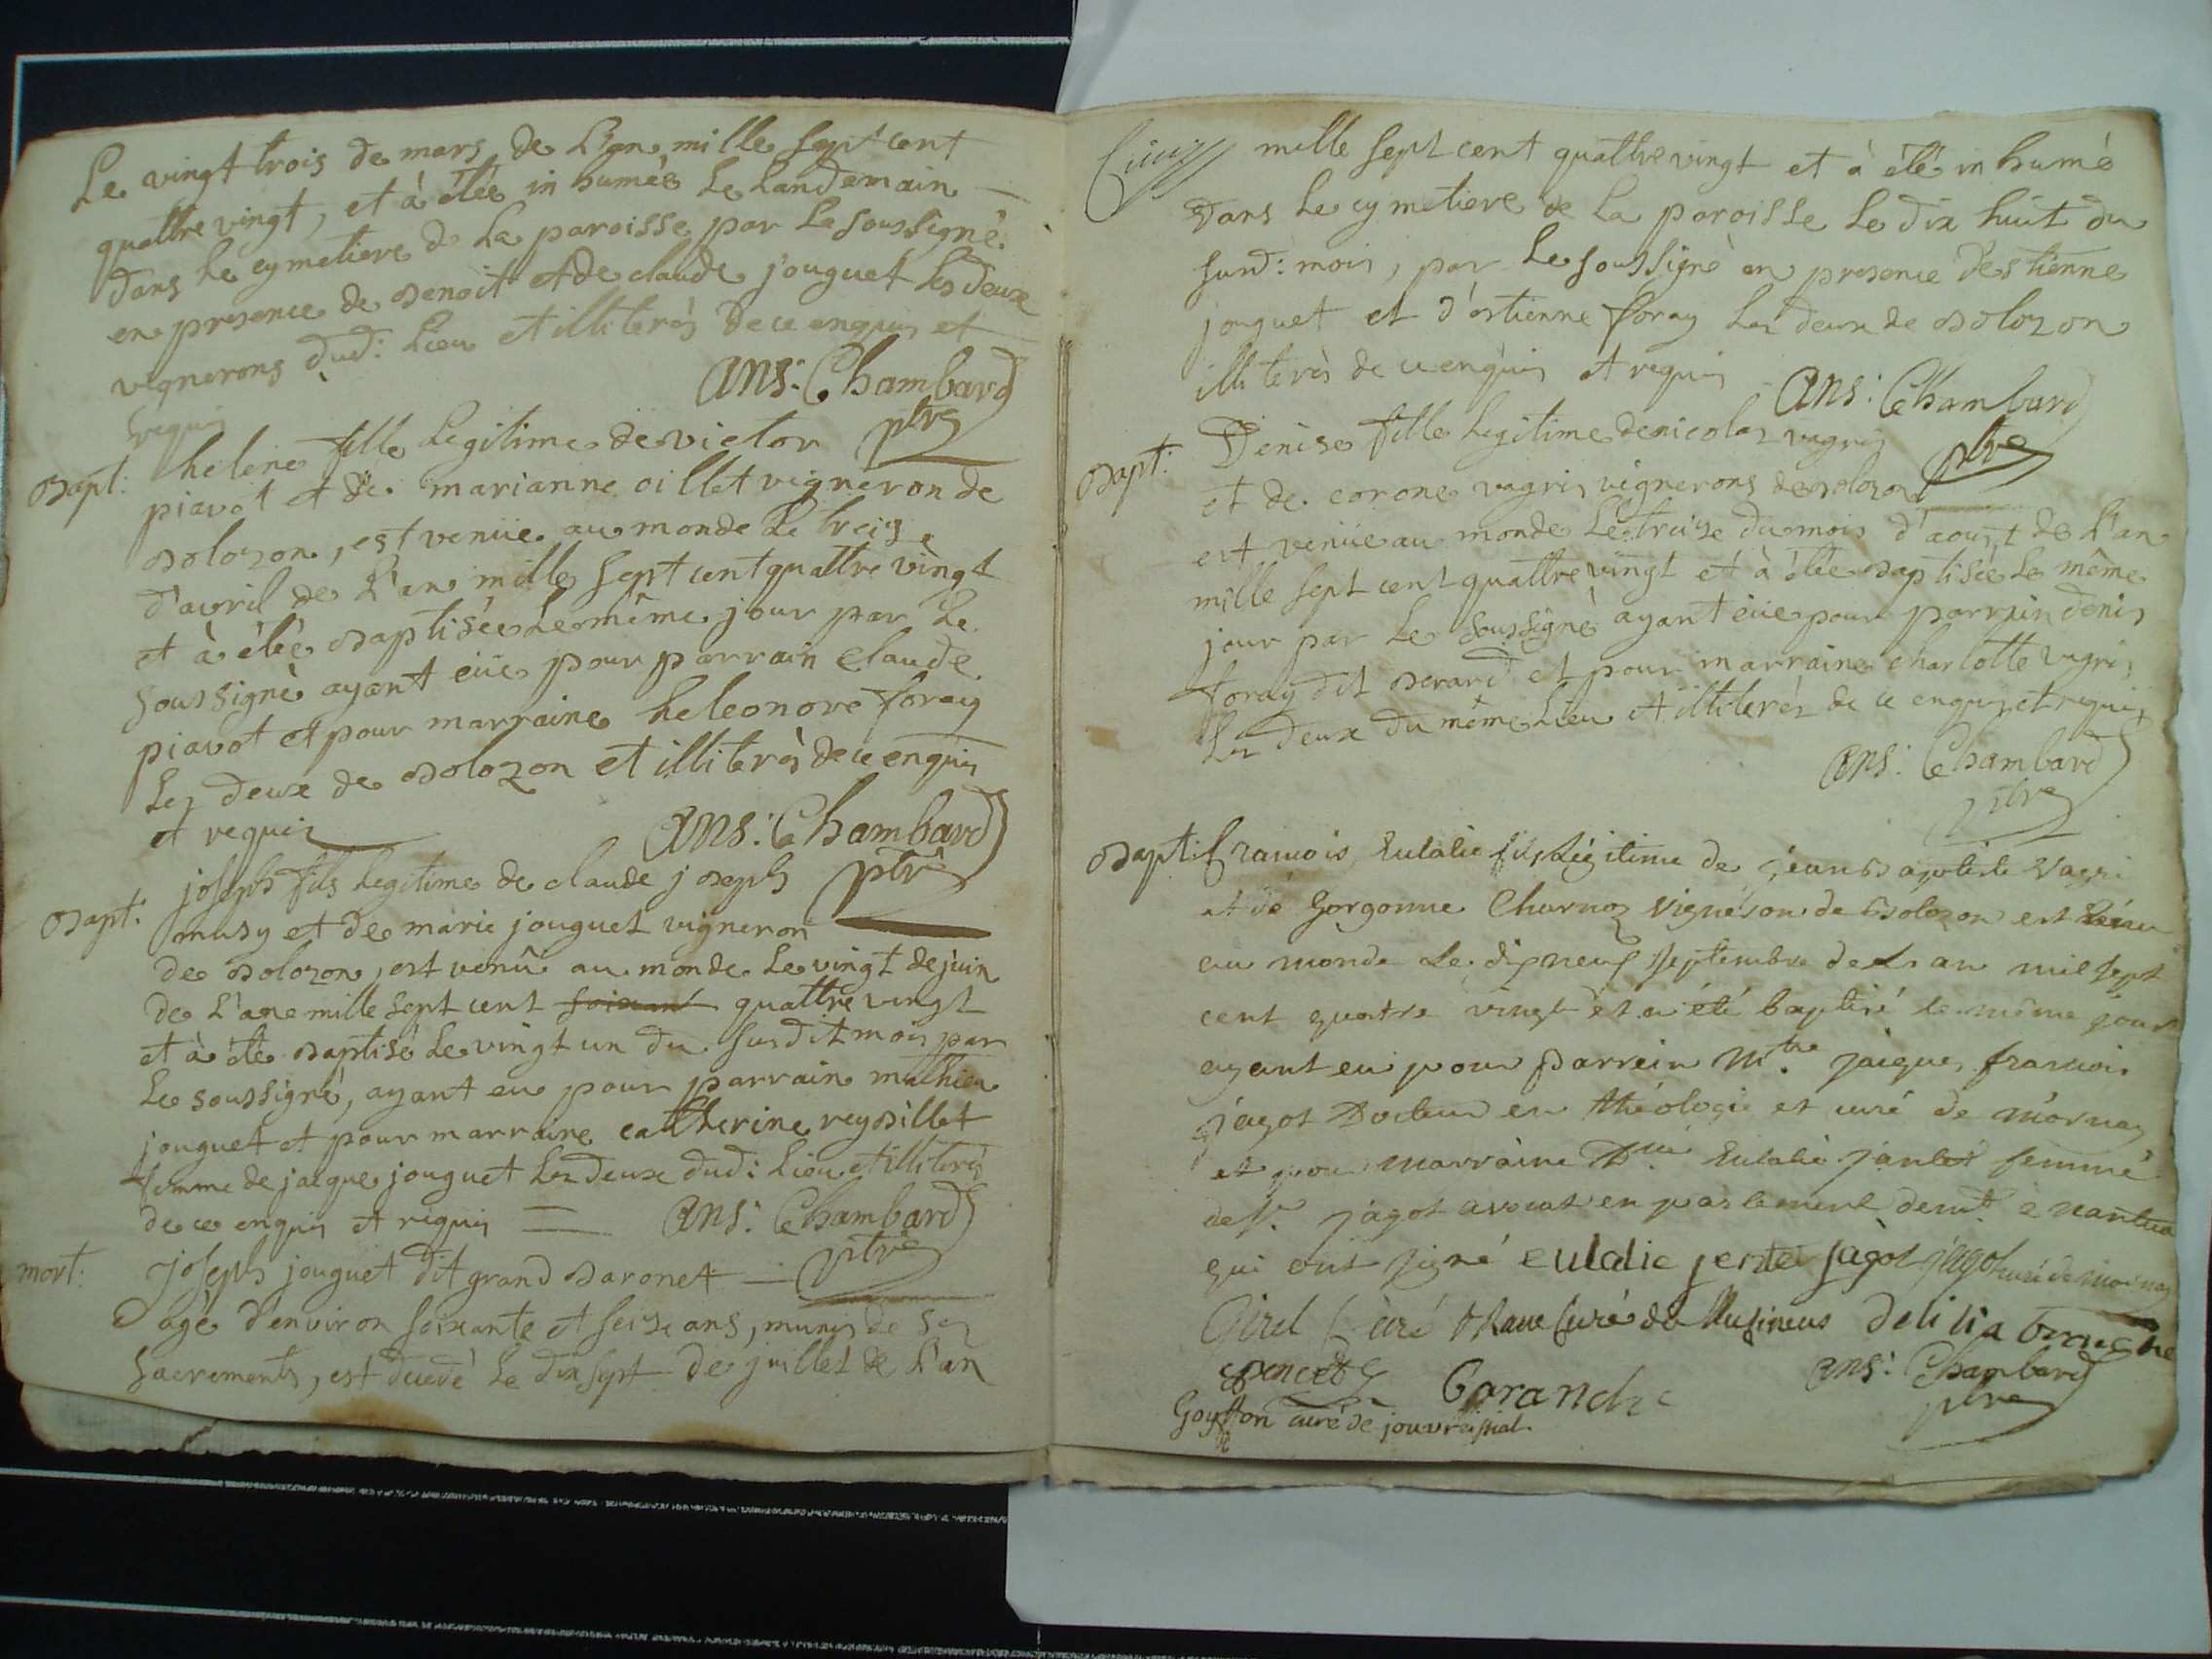 Le vingt trois de mars de L'an mille sept cent
quattre vingt, et à étée in humèe Le Landemain
dans Le cymetiere de La paroisse par Le soussigné
en presence de Benoit et de claude jouguet les deux
vignerons dud: Lieu et illiterés de ce enquis et
requis
Ans: Chambard
ptre
Bapt: helene fille Legitime de victor
piavot et de marianne oillet vigneron de
Bolozon, est venüe au monde Le treize
d'avril de L'an mille sept cent quattre vingt
et à étée Baptisée Le même jour par Le
soussigné ayant eüe pour parrain Claude
piavot et pour marraine heleonore foray
Les deux de Bolozon et illiterés de ce enquis
et requis Ans: Chambard
ptre
Bapt: joseph fils Legitime de claude joseph
musy et de marie jouguet vigneron
de Bolozon, est venû au monde Le vingt de juin
de L'ane mille sept cent soixant quattre vingt
et à été Baptisé Le vingt un du susdit mois par
Le soussigné, ayant eu pour parrain mathieu
jouguet et pour marraine catherine reydillet
femme de jacque jouguet Les deux dud: Lieu et illiterés
de ce enquis et requis Ans: Chambard
ptre
mort: Joseph jouguet dit grand Baronet
agé d'environ soixante et seize ans, munis de ses
sacrements, est decedé Le dix sept de juillet de L'an
mille sept cent quattre vingt et à été in humé
dans Le cymetiere de La paroisse Le dix huit du
susd: mois, par Le soussigné en presence d'estienne
jouguet et d'estienne foray Les deux de Bolozon
illiterés de ce enquis et requis Ans: Chambard
ptre
Bapt: Denise fille Legitime de nicolas vagris
et de corone vagris vignerons de Bolozon
est venüe au monde Le treize du mois d'aoust de L'an
mille sept cent quattre vingt et à étée Baptisée Le même
jour par Le soussigné ayant eüe pour parrain denis
foray dit Berard et pour marraine charlotte vagris
Les deux du même Lieu et illiterés de ce enquis et requis
Ans: Chambard
ptre
Bapt: francois Eulalie fils Légitime de jean Baptiste Vagri
et de Gorgonne Charnoz Vigneron de Bolozon est venu
au monde Le dixneuf septembre de L'an mil sept
cent quatre vingt et a été baptisé le même jour
ayant eu pour Parrein Mtre jacques francois
jagot Docteur en théologie et curé de mornay
et pour marraine Dme Eulalie jantet femme
de Sr jagot avocat en parlement demt a nantua
qui ont signé eulalie jentet jagot jagot curé de mornay
Girel Curé curé de
Garandre
Ans: Chambard
ptre
Gouffon curé de